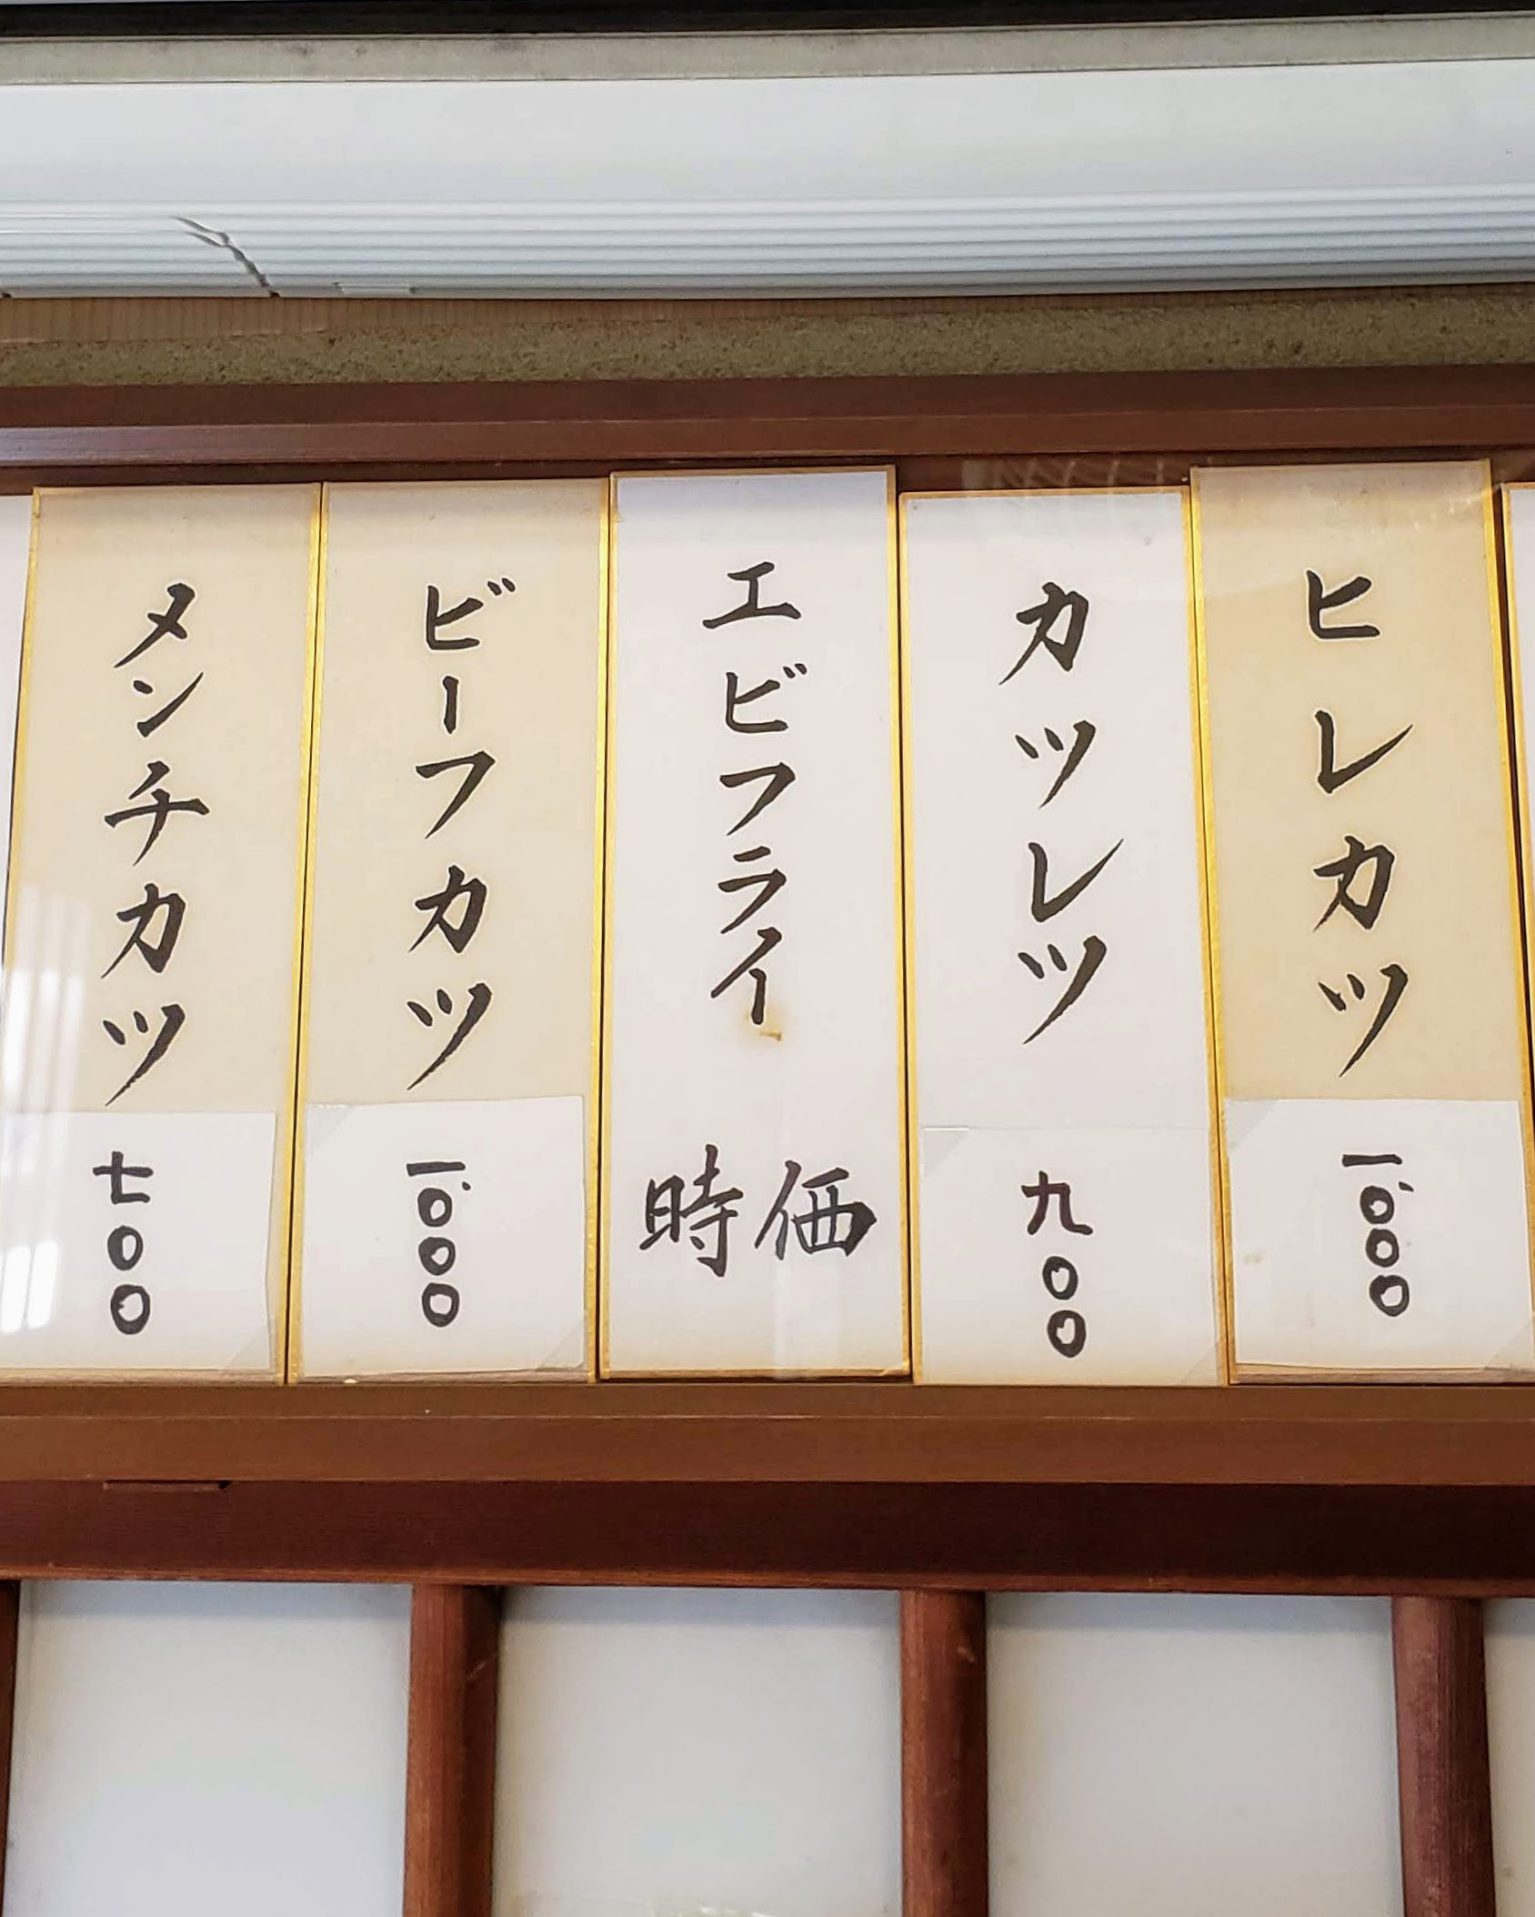 ヒレカツ
一、〇〇〇
カツレツ
九〇〇
エビフライ
時価
ビーフカツ
一、〇〇〇
メンチカツ
七〇〇